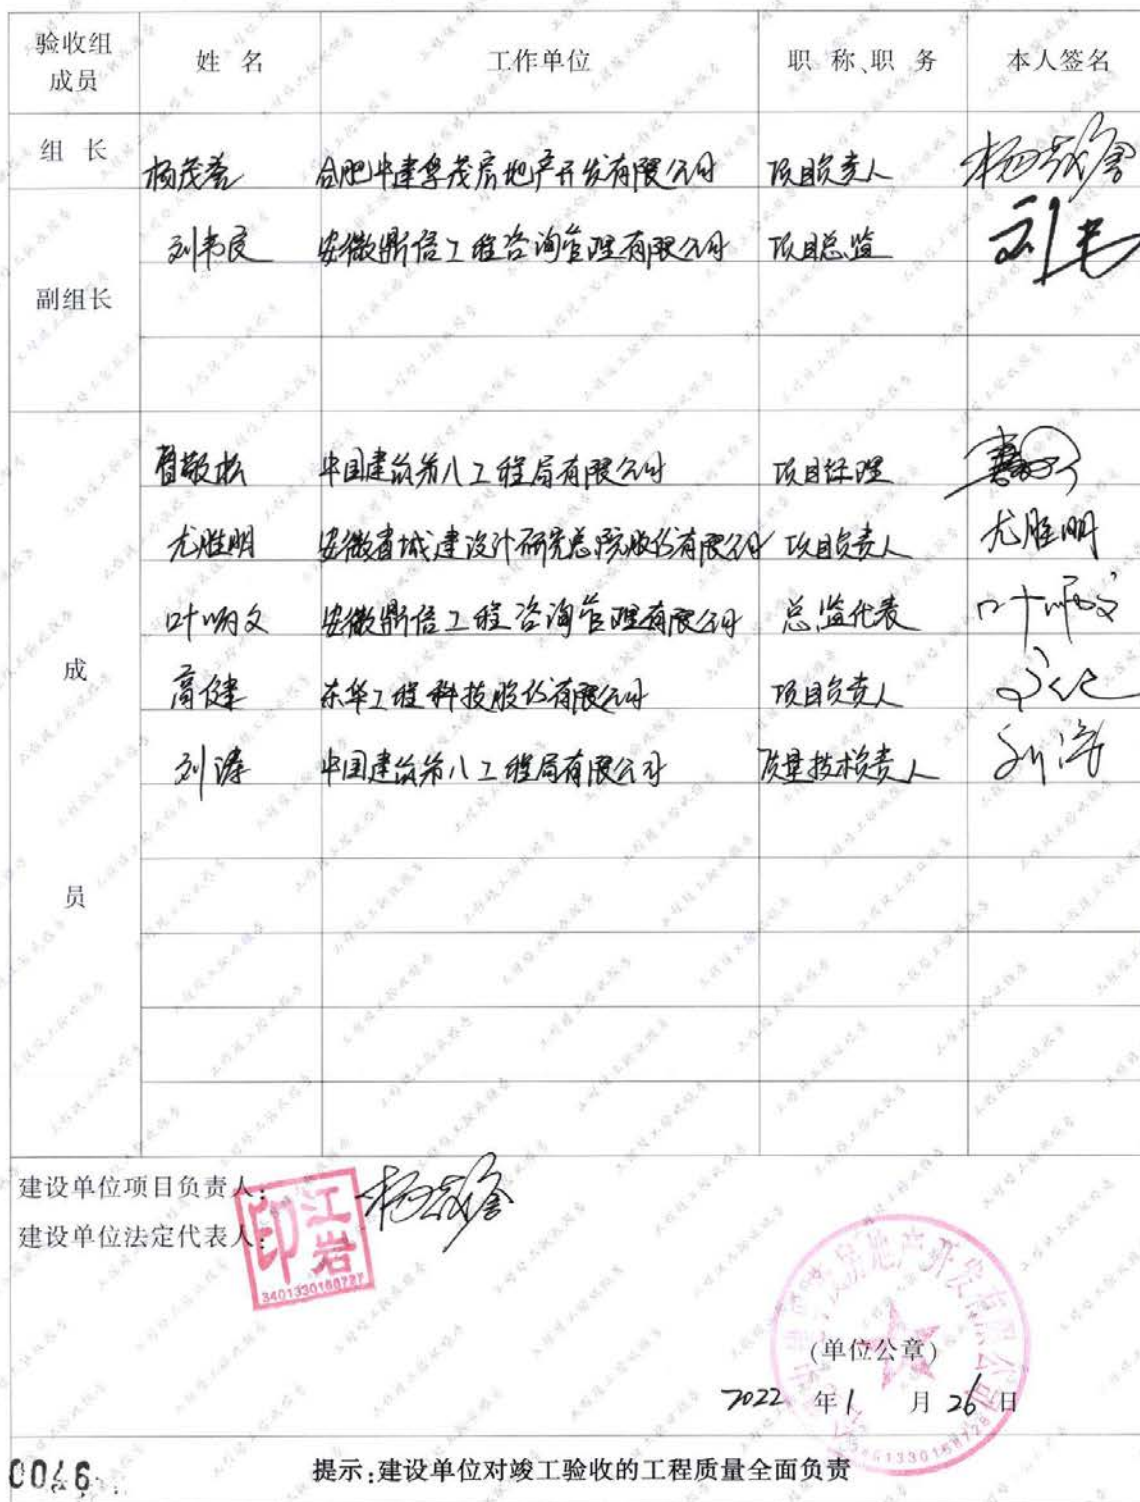 验收组成员 姓名 工作单位 职称、职务 本人签名
组长 杨茂誉 合肥中建孚茂房地产开发有限公司 项目负责人
刘韦良 安徽鼎信工程咨询管理有限公司 项目总监
副组长
曹敬松 中国建筑第八工程局有限公司 项目经理
尤胜明 安徽省城建设计研究总院股份有限公司 项目负责人 尤胜明
叶炳文 安徽鼎信工程咨询管理有限公司 总监代表 叶炳文
高健 东华工程科技股份有限公司 项目负责人
刘涛 中国建筑第八工程局有限公司 质量技术负责人 刘涛
成员
建设单位项目负责人:
建设单位法定代表人:
江岩印
房地产开发有限公司
(单位公章)
2022年1月26日
提示:建设单位对竣工验收的工程质量全面负责